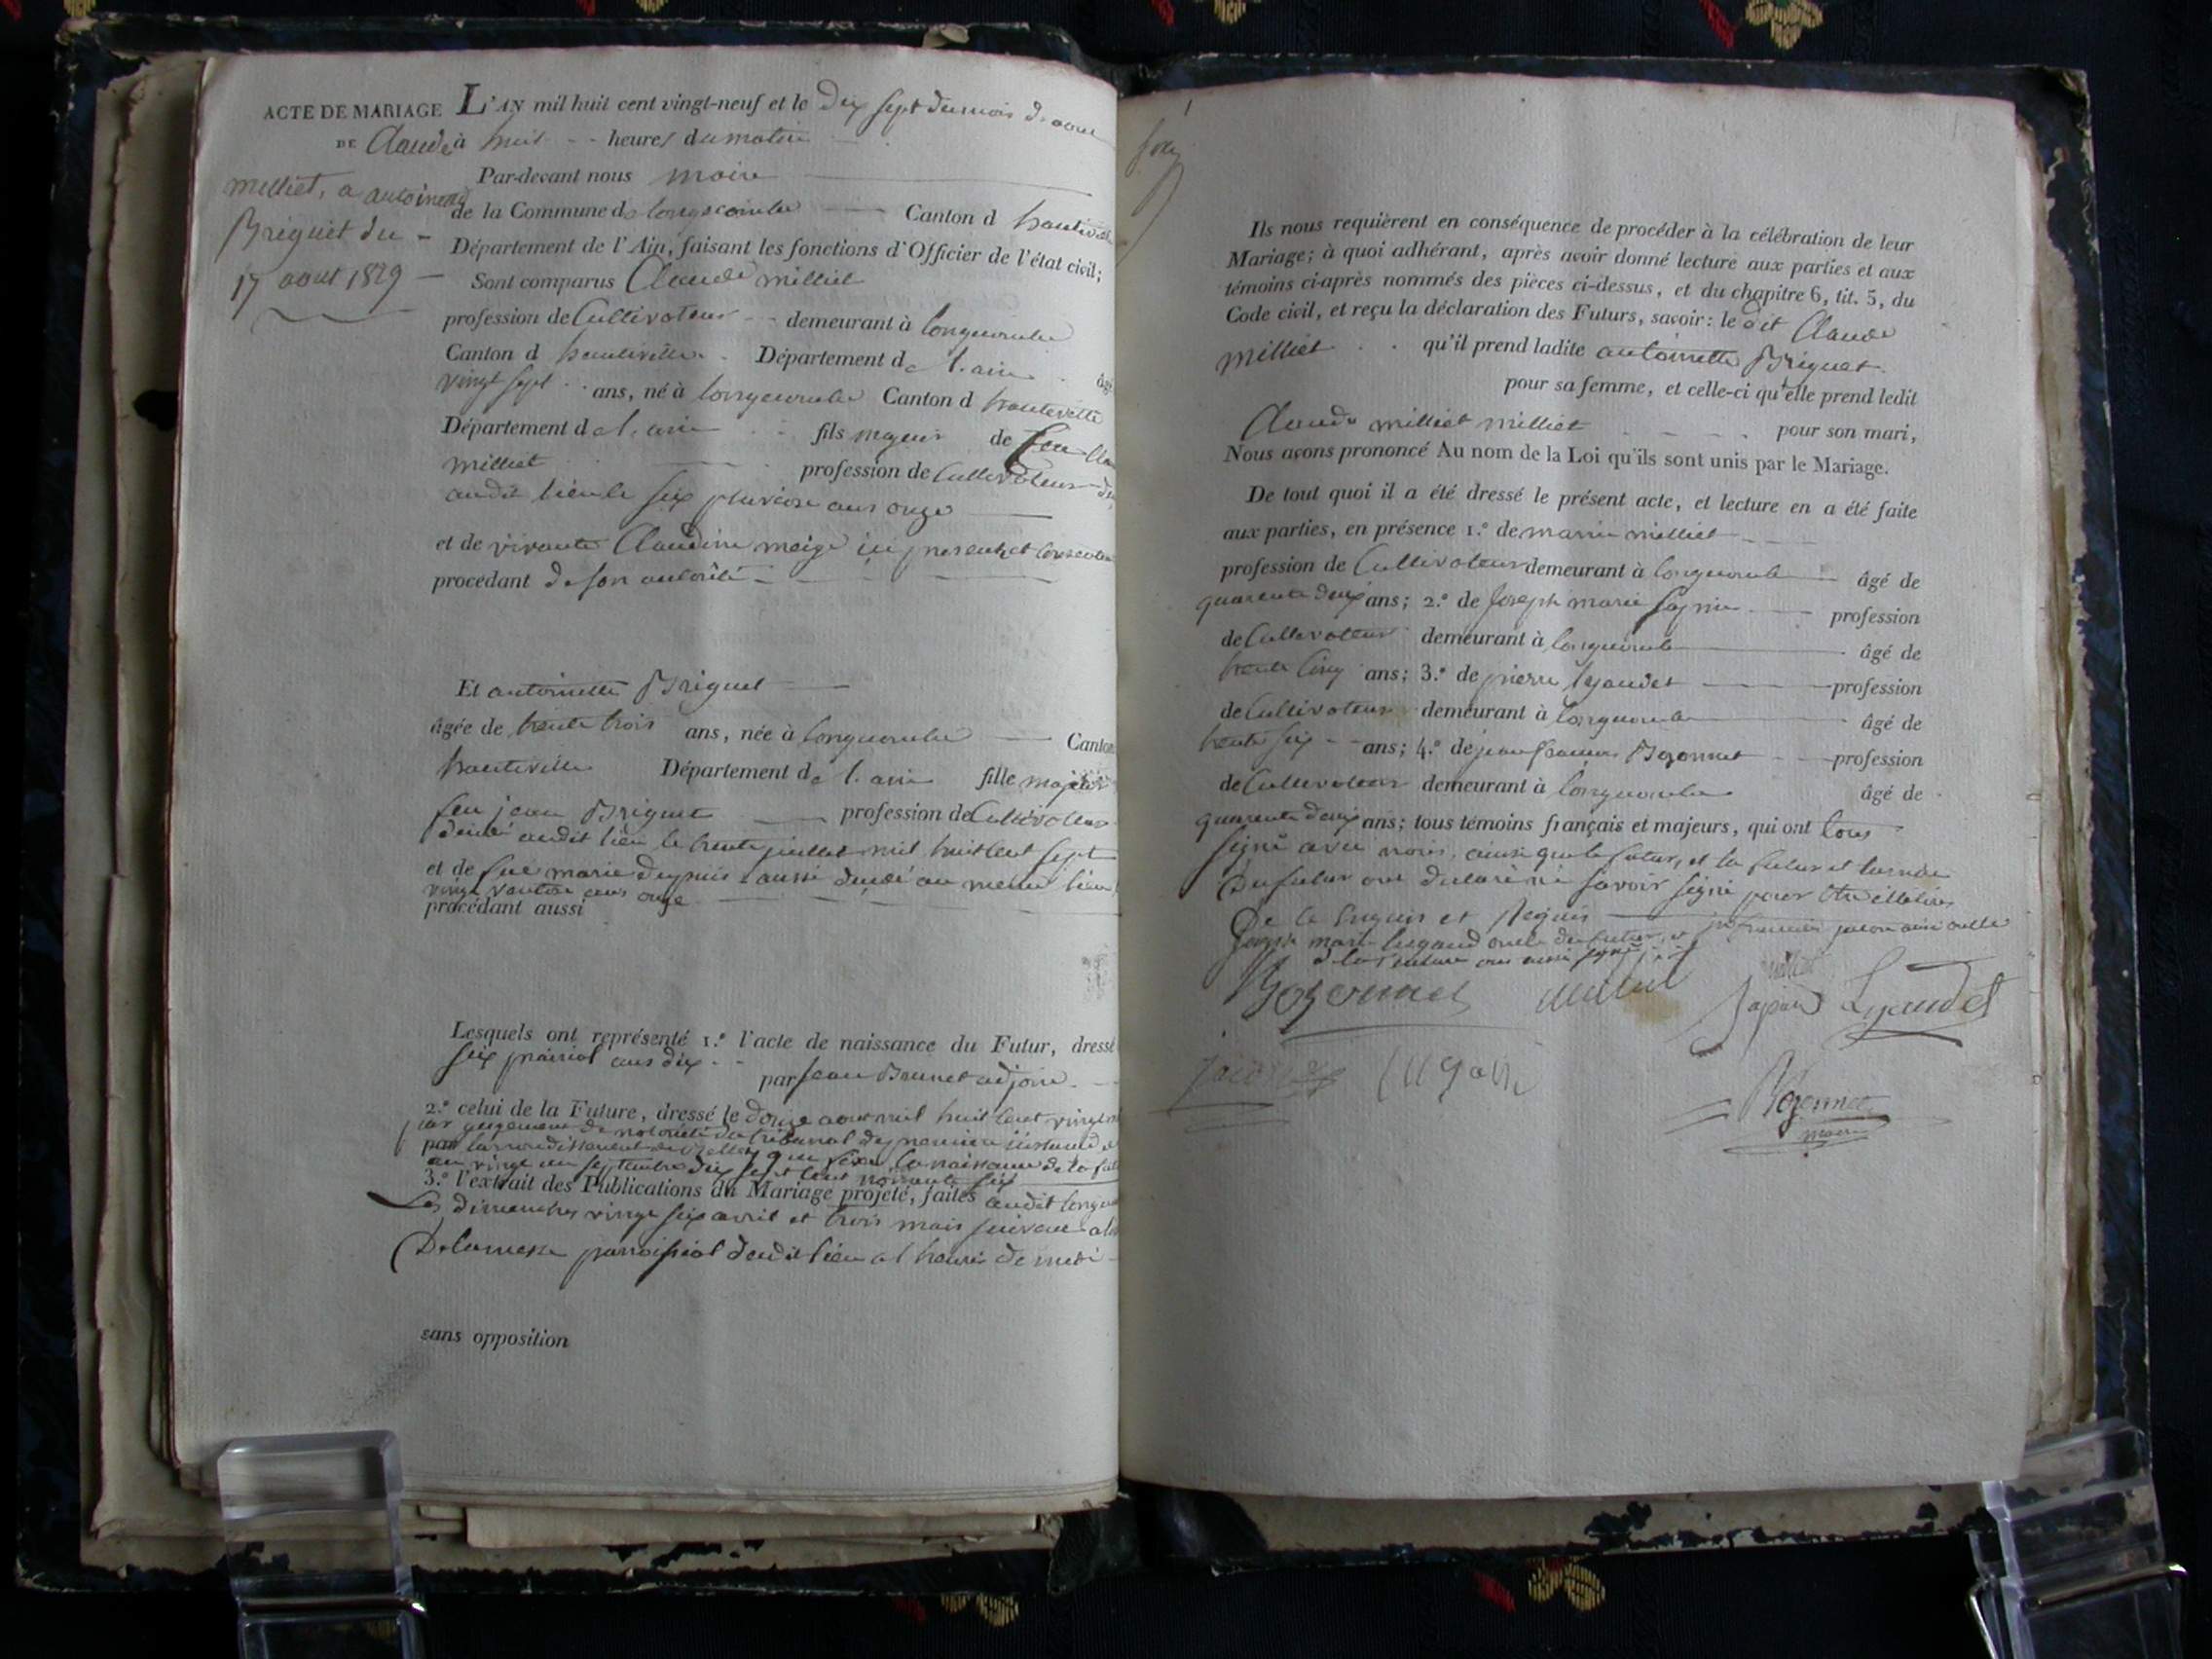 ACTE DE MARIAGE
DE Claude
milliet, a antoinette
Briguet du
17 aout 1829
L'AN mil huit cent vingt-neuf et le Dix sept du mois d'aout
à huit heures du matin
Par-devant nous maire
de la Commune de longecombe Canton d hauteville
Département de l'Ain, faisant les fonctions d'Officier de l'état civil;
Sont comparus Claude milliet
profession de Cultivateur demeurant à longecombe
Canton d hauteville Département de l'ain âgé
vingt sept ans, né à longecombe Canton d hauteville
Département de l'ain fils majeur de feu
milliet profession de Cultivateur
audit lieu le six pluviose ans onze
et de vivante Claudine meige ici presente et
procédant de son autorité
Et antoinette Briguet
âgée de trente trois ans, née à longecombe Canton
hauteville Département de l'ain fille majeure
feu jean Briguet profession de Cultivateur
décédé audit lieu le trente juillet mil huit cent sept
et de fue marie dupuis aussi décédé au meme lieu
vingt ventose ans onze
procédant aussi
Lesquels ont représenté 1.º l'acte de naissance du Futur, dressé
six prairial ans dix par jean Bonnet adjoin
2.º celui de la Future, dressé le douze aout mil huit cent vingt
par jugement de notoriété du tribunal de premiere instance
par larrondissement de Belley qui fixe la naissance de la
au vingt un septembre dix sept cent nonante six
3.º l'extrait des Publications du Mariage projeté, faites audit
Les dimanches vingt six avril et trois mais suivant
De la messe parroissial dudit lieu a l heure de midi
sans opposition
Ils nous requièrent en conséquence de procéder à la célébration de leur
Mariage; à quoi adhérant, après avoir donné lecture aux parties et aux
témoins ci-après nommés des pièces ci-dessus, et du chapitre 6, tit. 5, du
Code civil, et reçu la déclaration des Futurs, savoir: le dit Claude
milliet qu'il prend ladite antoinette Briguet
pour sa femme, et celle-ci qu'elle prend ledit
Claude milliet milliet pour son mari,
Nous avons prononcé Au nom de la Loi qu'ils sont unis par le Mariage.
De tout quoi il a été dressé le présent acte, et lecture en a été faite
aux parties, en présence 1.º de marie milliet
profession de Cultivateur demeurant à longecombe âgé de
quarente deux ans; 2.º de Joseph marie Sapin profession
de Cultivateur demeurant à longecombe âgé de
trente cinq ans; 3.º de pierre lyaudet profession
de Cultivateur demeurant à longecombe âgé de
trente six ans; 4.º de jean francois Bozonnet profession
de Cultivateur demeurant à longecombe âgé de
quarente deux ans; tous témoins français et majeurs, qui ont tous
signé avec nous, ainsi que le futur, et la future et la mere
Du futur ont declaré ne savoir signé pour être illettrés
De le enquis et Requis
Bozonnet milliet Sapin Lyaudet
Bozonnet
maire